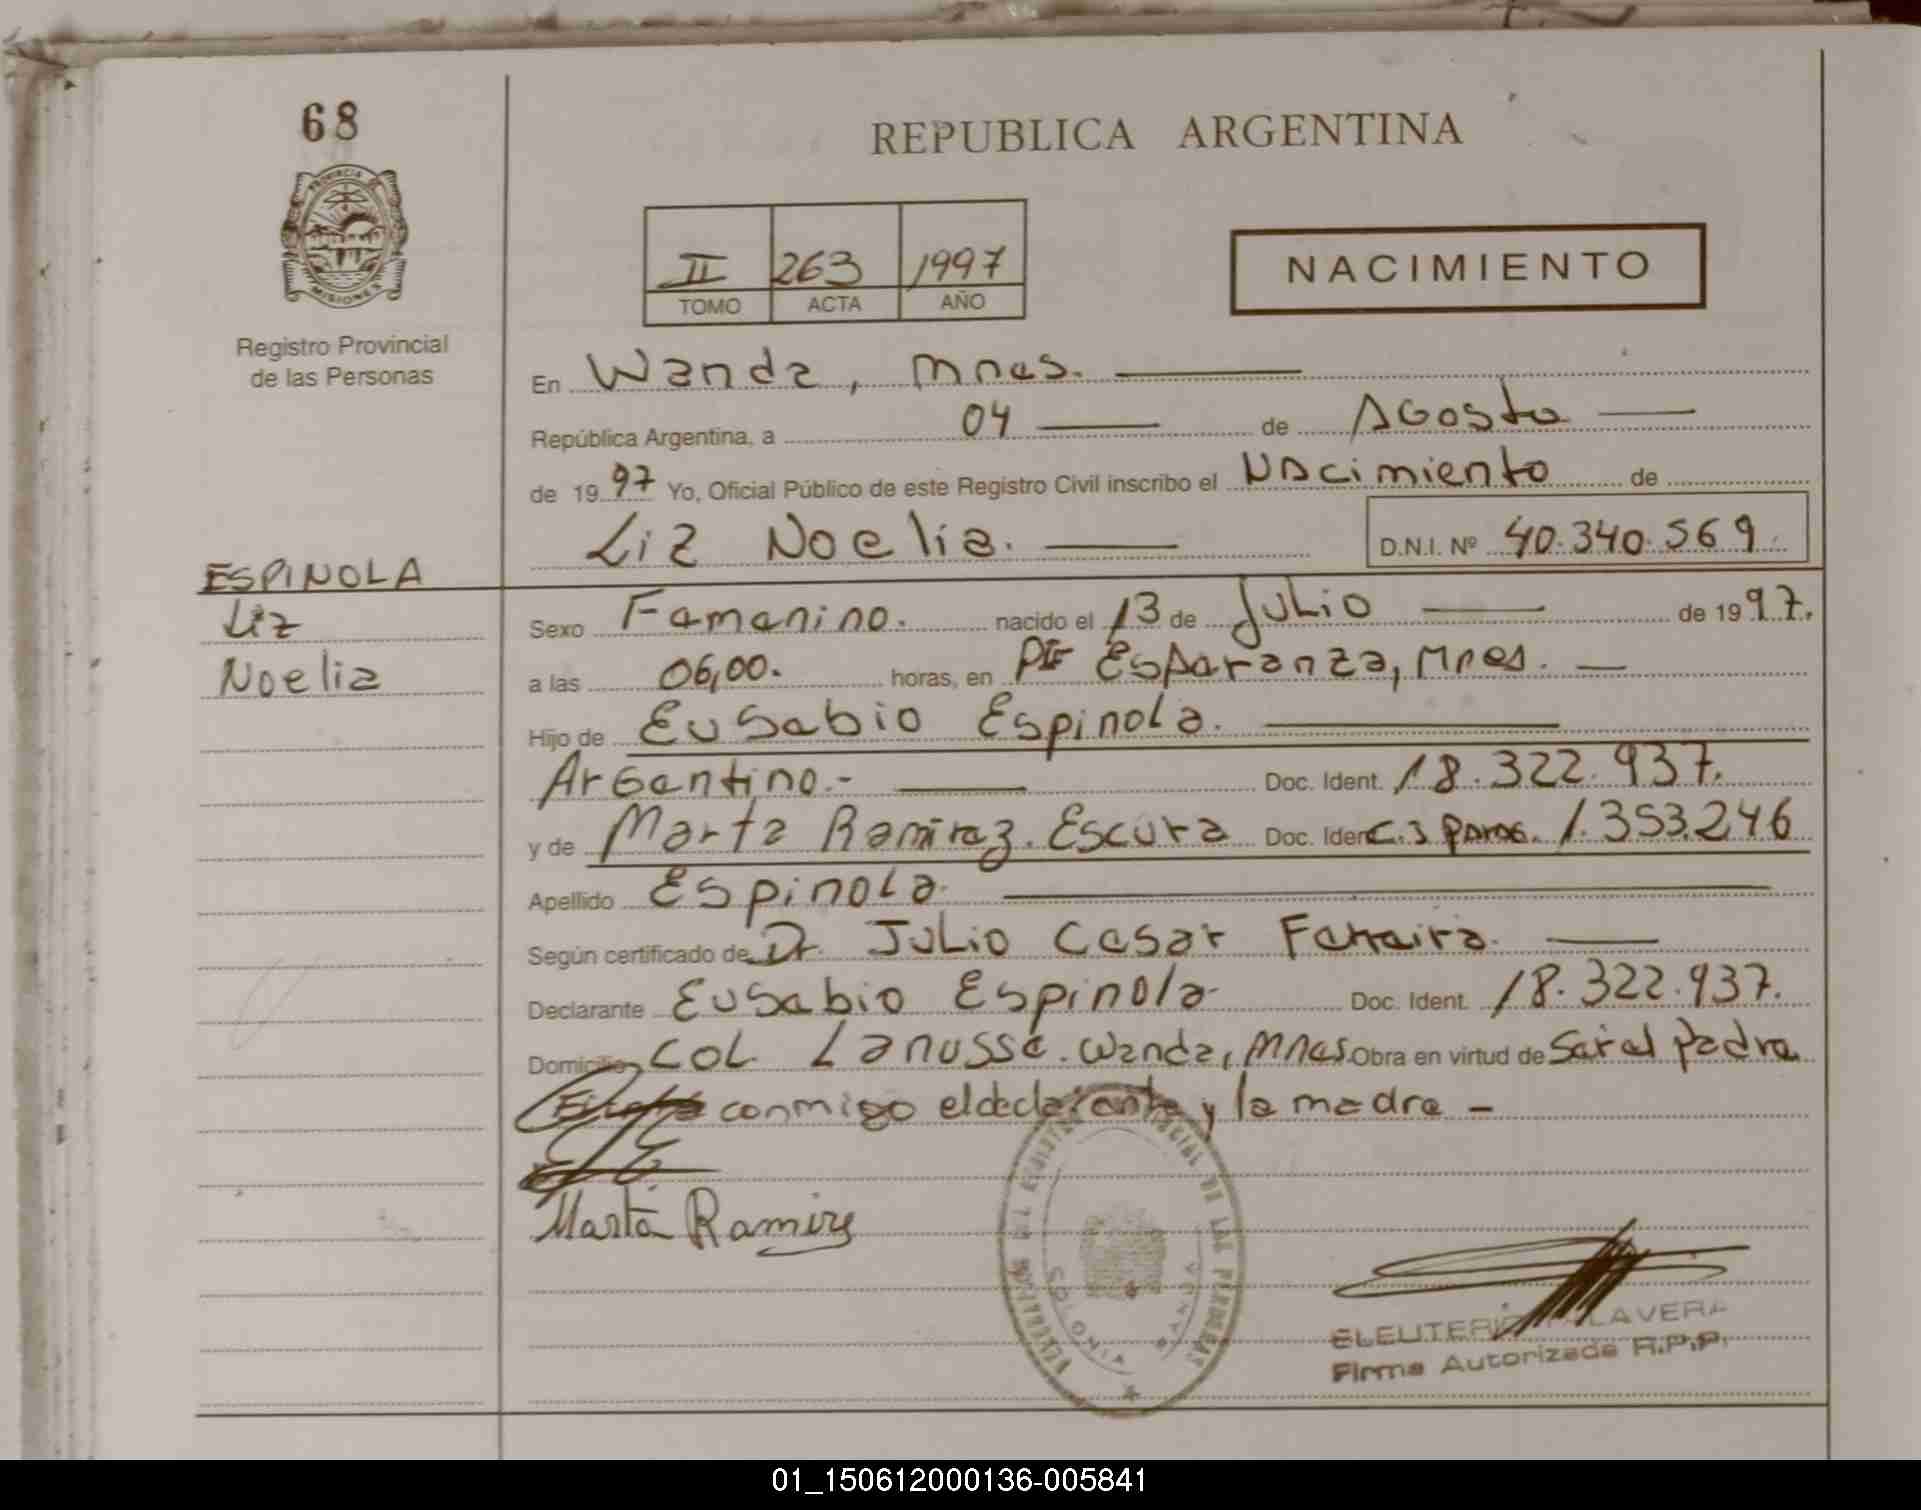 68
REPUBLICA ARGENTINA
PROVINCIA DE
MISIONES
II 263 1997
TOMO ACTA AÑO
NACIMIENTO
Registro Provincial
de las Personas
En Wanda, Mnes.
República Argentina, a 04 de Agosto
de 1997 Yo, Oficial Público de este Registro Civil inscribo el Nacimiento de
Liz Noelia. D.N.I. Nº 40.340.569.
ESPINOLA
Liz
Noelia
Sexo Femenino. nacido el 13 de Julio de 1997.
a las 06,00. horas, en Pto Esperanza, Mnes.
Hijo de Eusebio Espinola.
Argentino.- Doc. Ident. 18.322.937.
y de Marta Ramirez. Escura Doc. Iden C.I 1.353.246
Apellido Espinola.
Según certificado de Dr. Julio Cesar Ferreira.
Declarante Eusebio Espinola Doc. Ident. 18.322.937.
Domicilio Col. Lanusse. Wanda, Mnes. Obra en virtud de Ser el padre
conmigo el declarante y la madre -
Marta Ramirez
COLONIA WANDA
ELEUTERIO LAVERA
Firma Autorizada R.P.P.
01_150612000136-005841